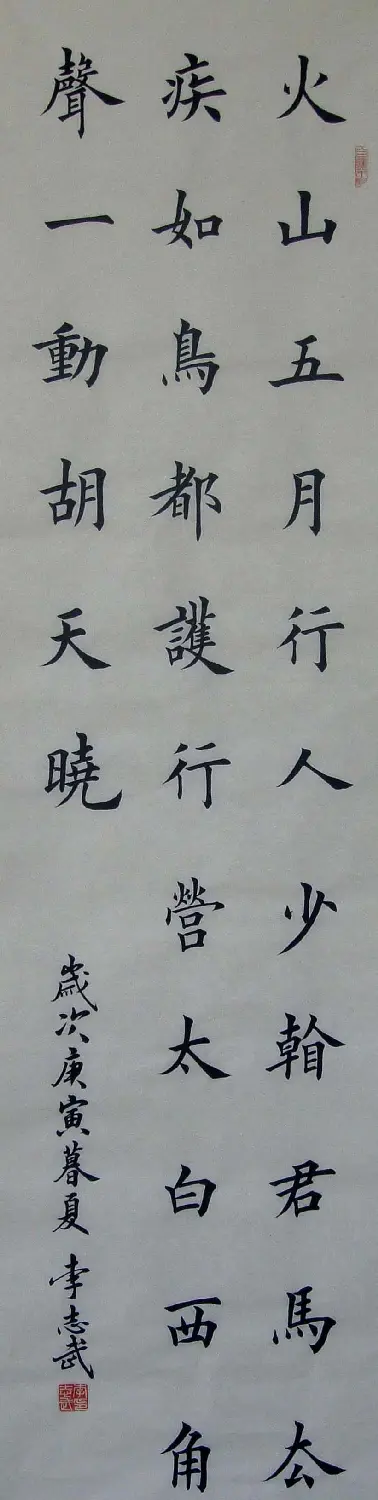 火山五月行人少看君馬去
疾如鳥都護行營太白西角
聲一動胡天曉
歲次庚寅暮夏 李志武